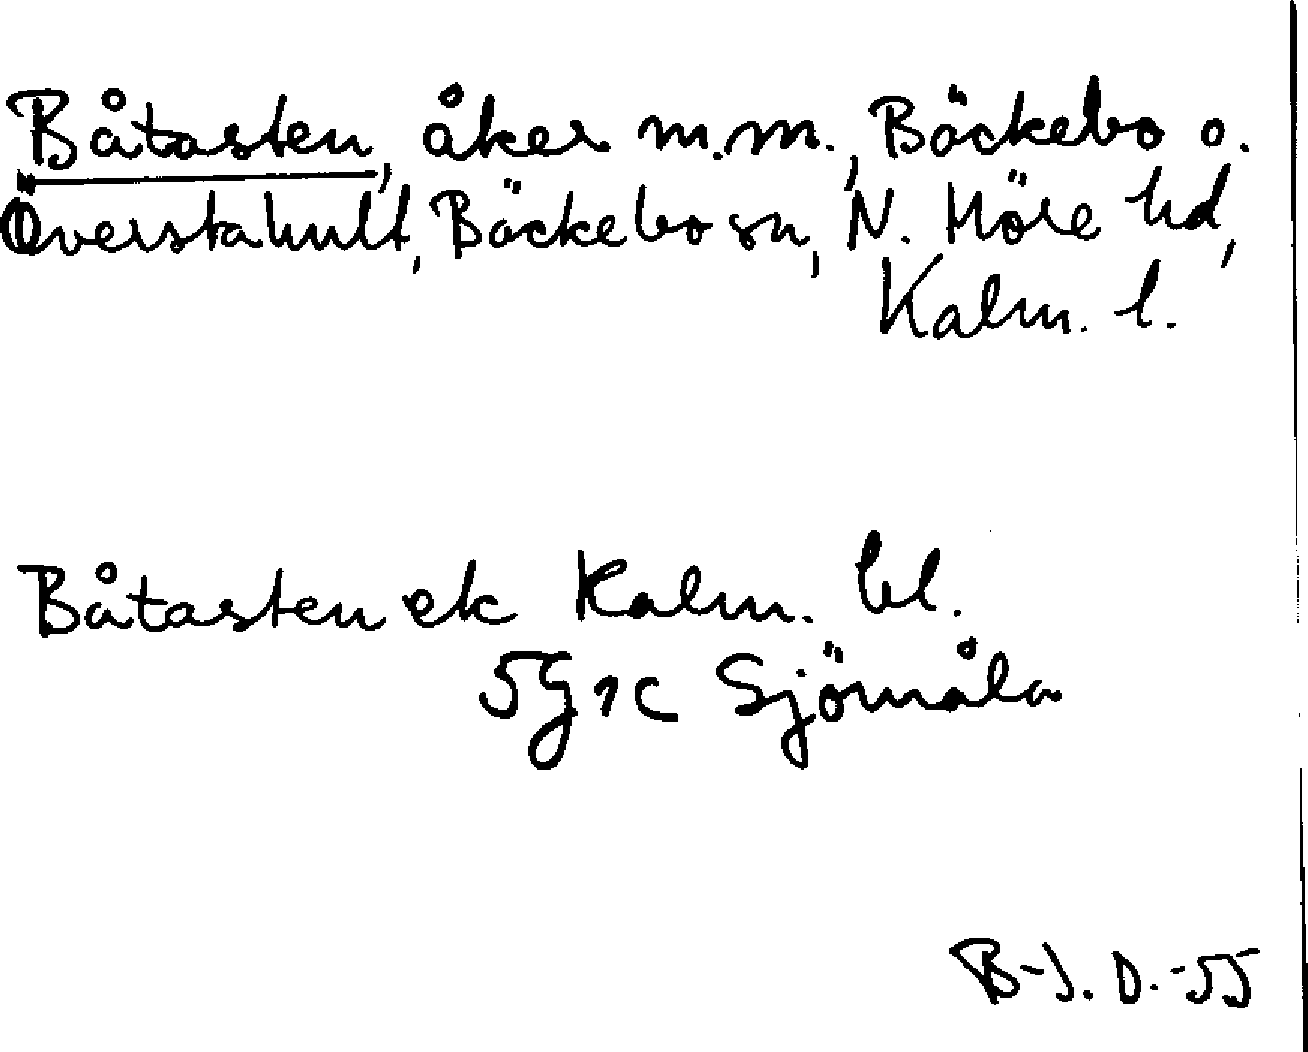 Båtasten, åker m.m., Bäckebo o.
Överstahult, Bäckebo sn, N. Möre hd,
Kalm. l.
Båtasten ek Kalm. bl.
5G1c Sjömåla
B-J. D. -55